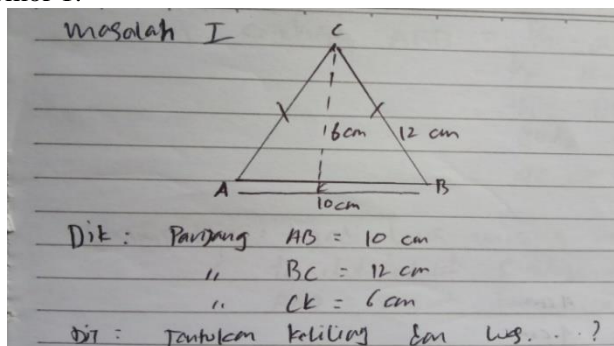 Masalah I
C
6 cm
12 cm
A
K
B
10 cm
Dik : Panjang AB = 10 cm
" BC = 12 cm
" CK = 6 cm
Dit : Tentukan keliling dan luas. . . ?